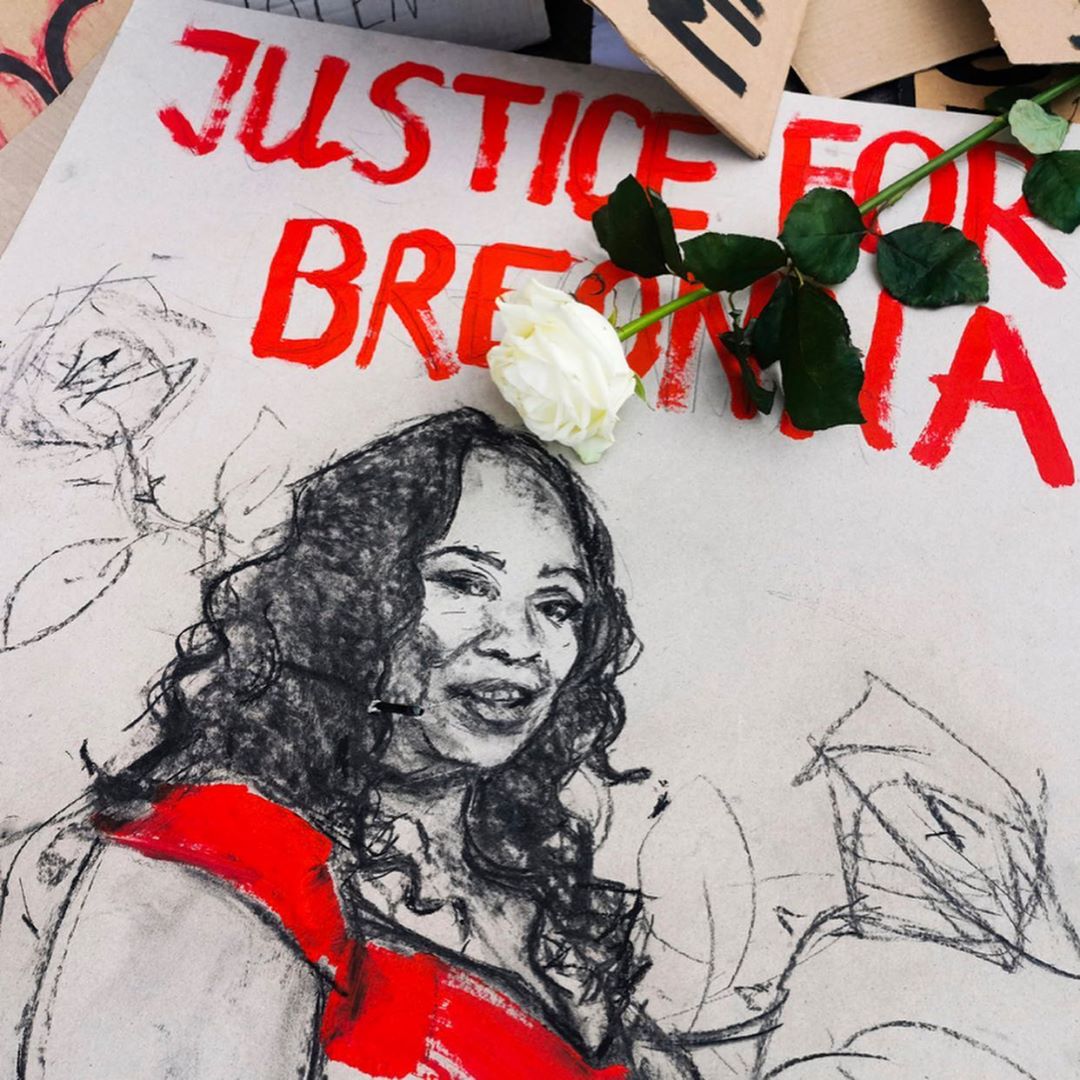 JUSTICE FOR
BREONNA